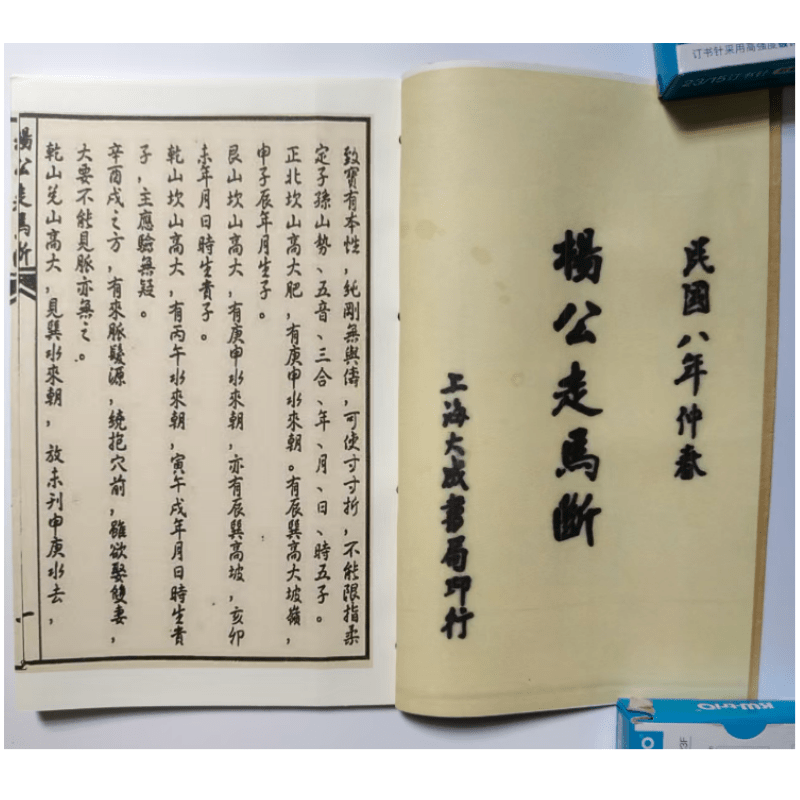 民國八年仲春
楊公走馬斷
上海大成書局印行
致寶有本性，純剛無與儔，可使寸寸折，不能限指柔
定子孫山勢、五音、三合、年、月、日、時五子。
正北坎山高大肥，有庚申水來朝。有辰巽高大坡嶺，
申子辰年月生子。
艮山坎山高大，有庚申水來朝，亦有辰巽高坡，亥卯
未年月日時生貴子。
乾山坎山高大，有丙午水來朝，寅午戌年月日時生貴
子，主應驗無疑。
辛酉戌之方，有來脈髮源，繞抱穴前，雖欲娶雙妻，
大要不能見脈亦無之。
乾山兑山高大，見巽水來朝，放未刊申庚水去，
楊公走馬斷
一
订书针采用高强度
23/15订书针
KW-triO